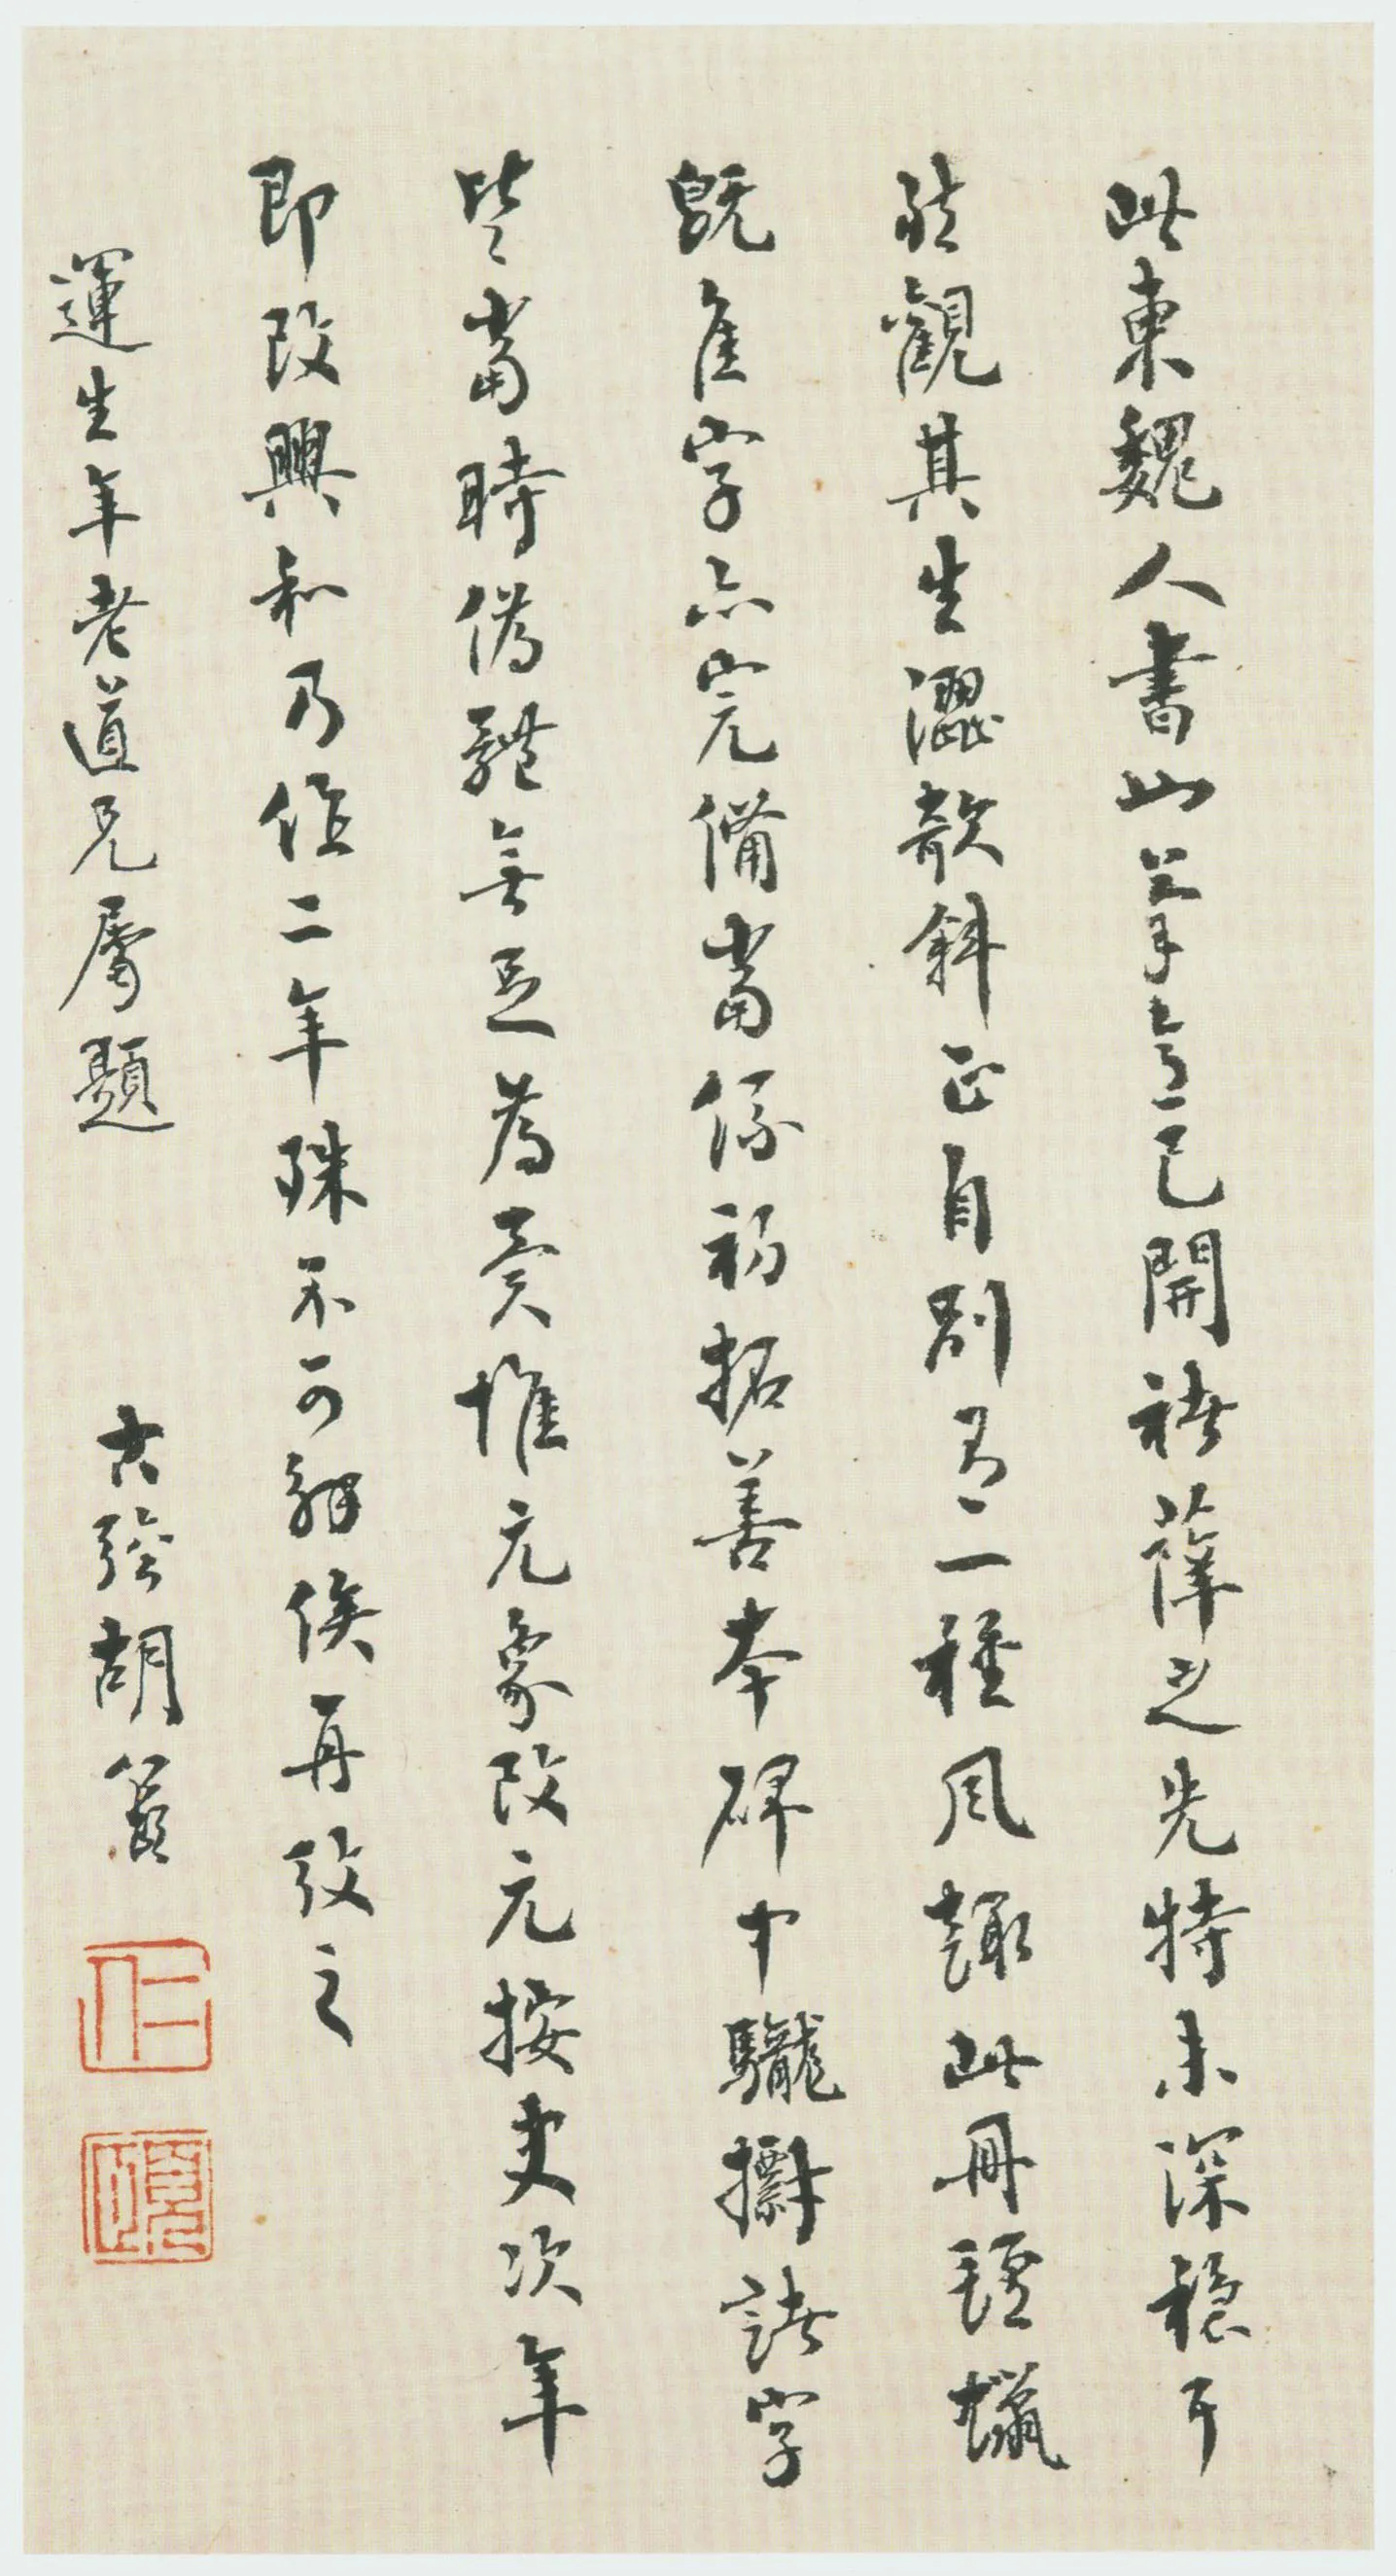 此東魏人書也筆意已開褚薛之先特未深穩耳
然觀其生澀欹斜正自別有一種風趣此冊氊蠟
既佳字亦完備當係初拓善本碑中諸字
皆當時僞體無足為異惟元象改元按史次年
即改興和乃作二年殊不可解俟再攷之
運生年老道兄屬題
古胡